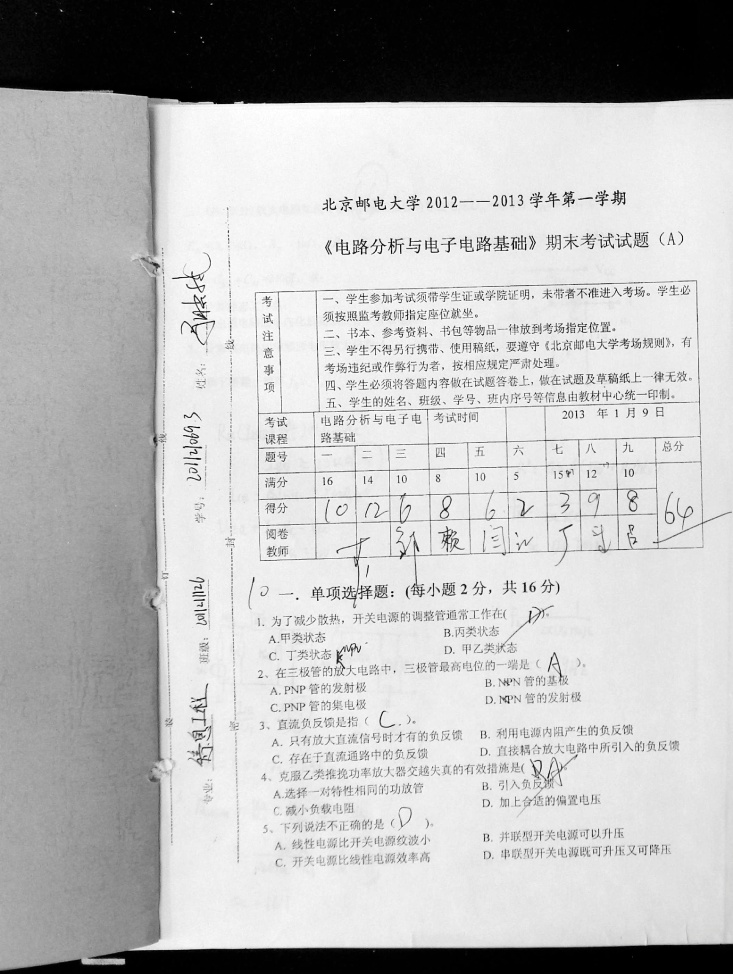 北京邮电大学 2012——2013 学年第一学期
《电路分析与电子电路基础》期末考试试题（A）
考试注意事项
一、学生参加考试须带学生证或学院证明，未带者不准进入考场。学生必
须按照监考教师指定座位就坐。
二、书本、参考资料、书包等物品一律放到考场指定位置。
三、学生不得另行携带、使用稿纸，要遵守《北京邮电大学考场规则》，有
考场违纪或作弊行为者，按相应规定严肃处理。
四、学生必须将答题内容做在试题答卷上，做在试题及草稿纸上一律无效。
五、学生的姓名、班级、学号、班内序号等信息由教材中心统一印制。
考试课程 电路分析与电子电路基础 考试时间 2013 年 1 月 9 日
题号 一 二 三 四 五 六 七 八 九 总分
满分 16 14 10 8 10 5 15 12 10
得分 10 12 6 8 6 2 3 9 8 64
阅卷教师
10 一．单项选择题：(每小题 2 分，共 16 分)
1. 为了减少散热，开关电源的调整管通常工作在( D )。
A.甲类状态 B.丙类状态
C. 丁类状态 D. 甲乙类状态
2、在三极管的放大电路中，三极管最高电位的一端是（ A ）。
A. PNP 管的发射极 B. NPN 管的基极
C. PNP 管的集电极 D. NPN 管的发射极
3、直流负反馈是指（ C ）。
A. 只有放大直流信号时才有的负反馈 B. 利用电源内阻产生的负反馈
C. 存在于直流通路中的负反馈 D. 直接耦合放大电路中所引入的负反馈
4、克服乙类推挽功率放大器交越失真的有效措施是( A
A.选择一对特性相同的功放管 B. 引入负反馈
C. 减小负载电阻 D. 加上合适的偏置电压
5、下列说法不正确的是（ D ）。
A. 线性电源比开关电源纹波小 B. 并联型开关电源可以升压
C. 开关电源比线性电源效率高 D. 串联型开关电源既可升压又可降压
姓名：
学号：
班级：
专业： 信息工程
线
封
密